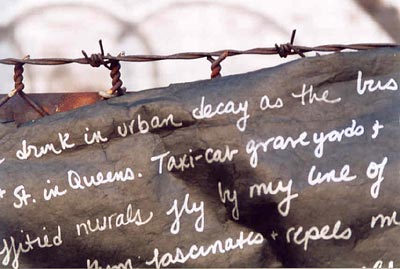 drink in urban decay as the bus
St. in Queens. Taxi-cab graveyards +
ffitied murals fly by my line of
fascinates + repels m